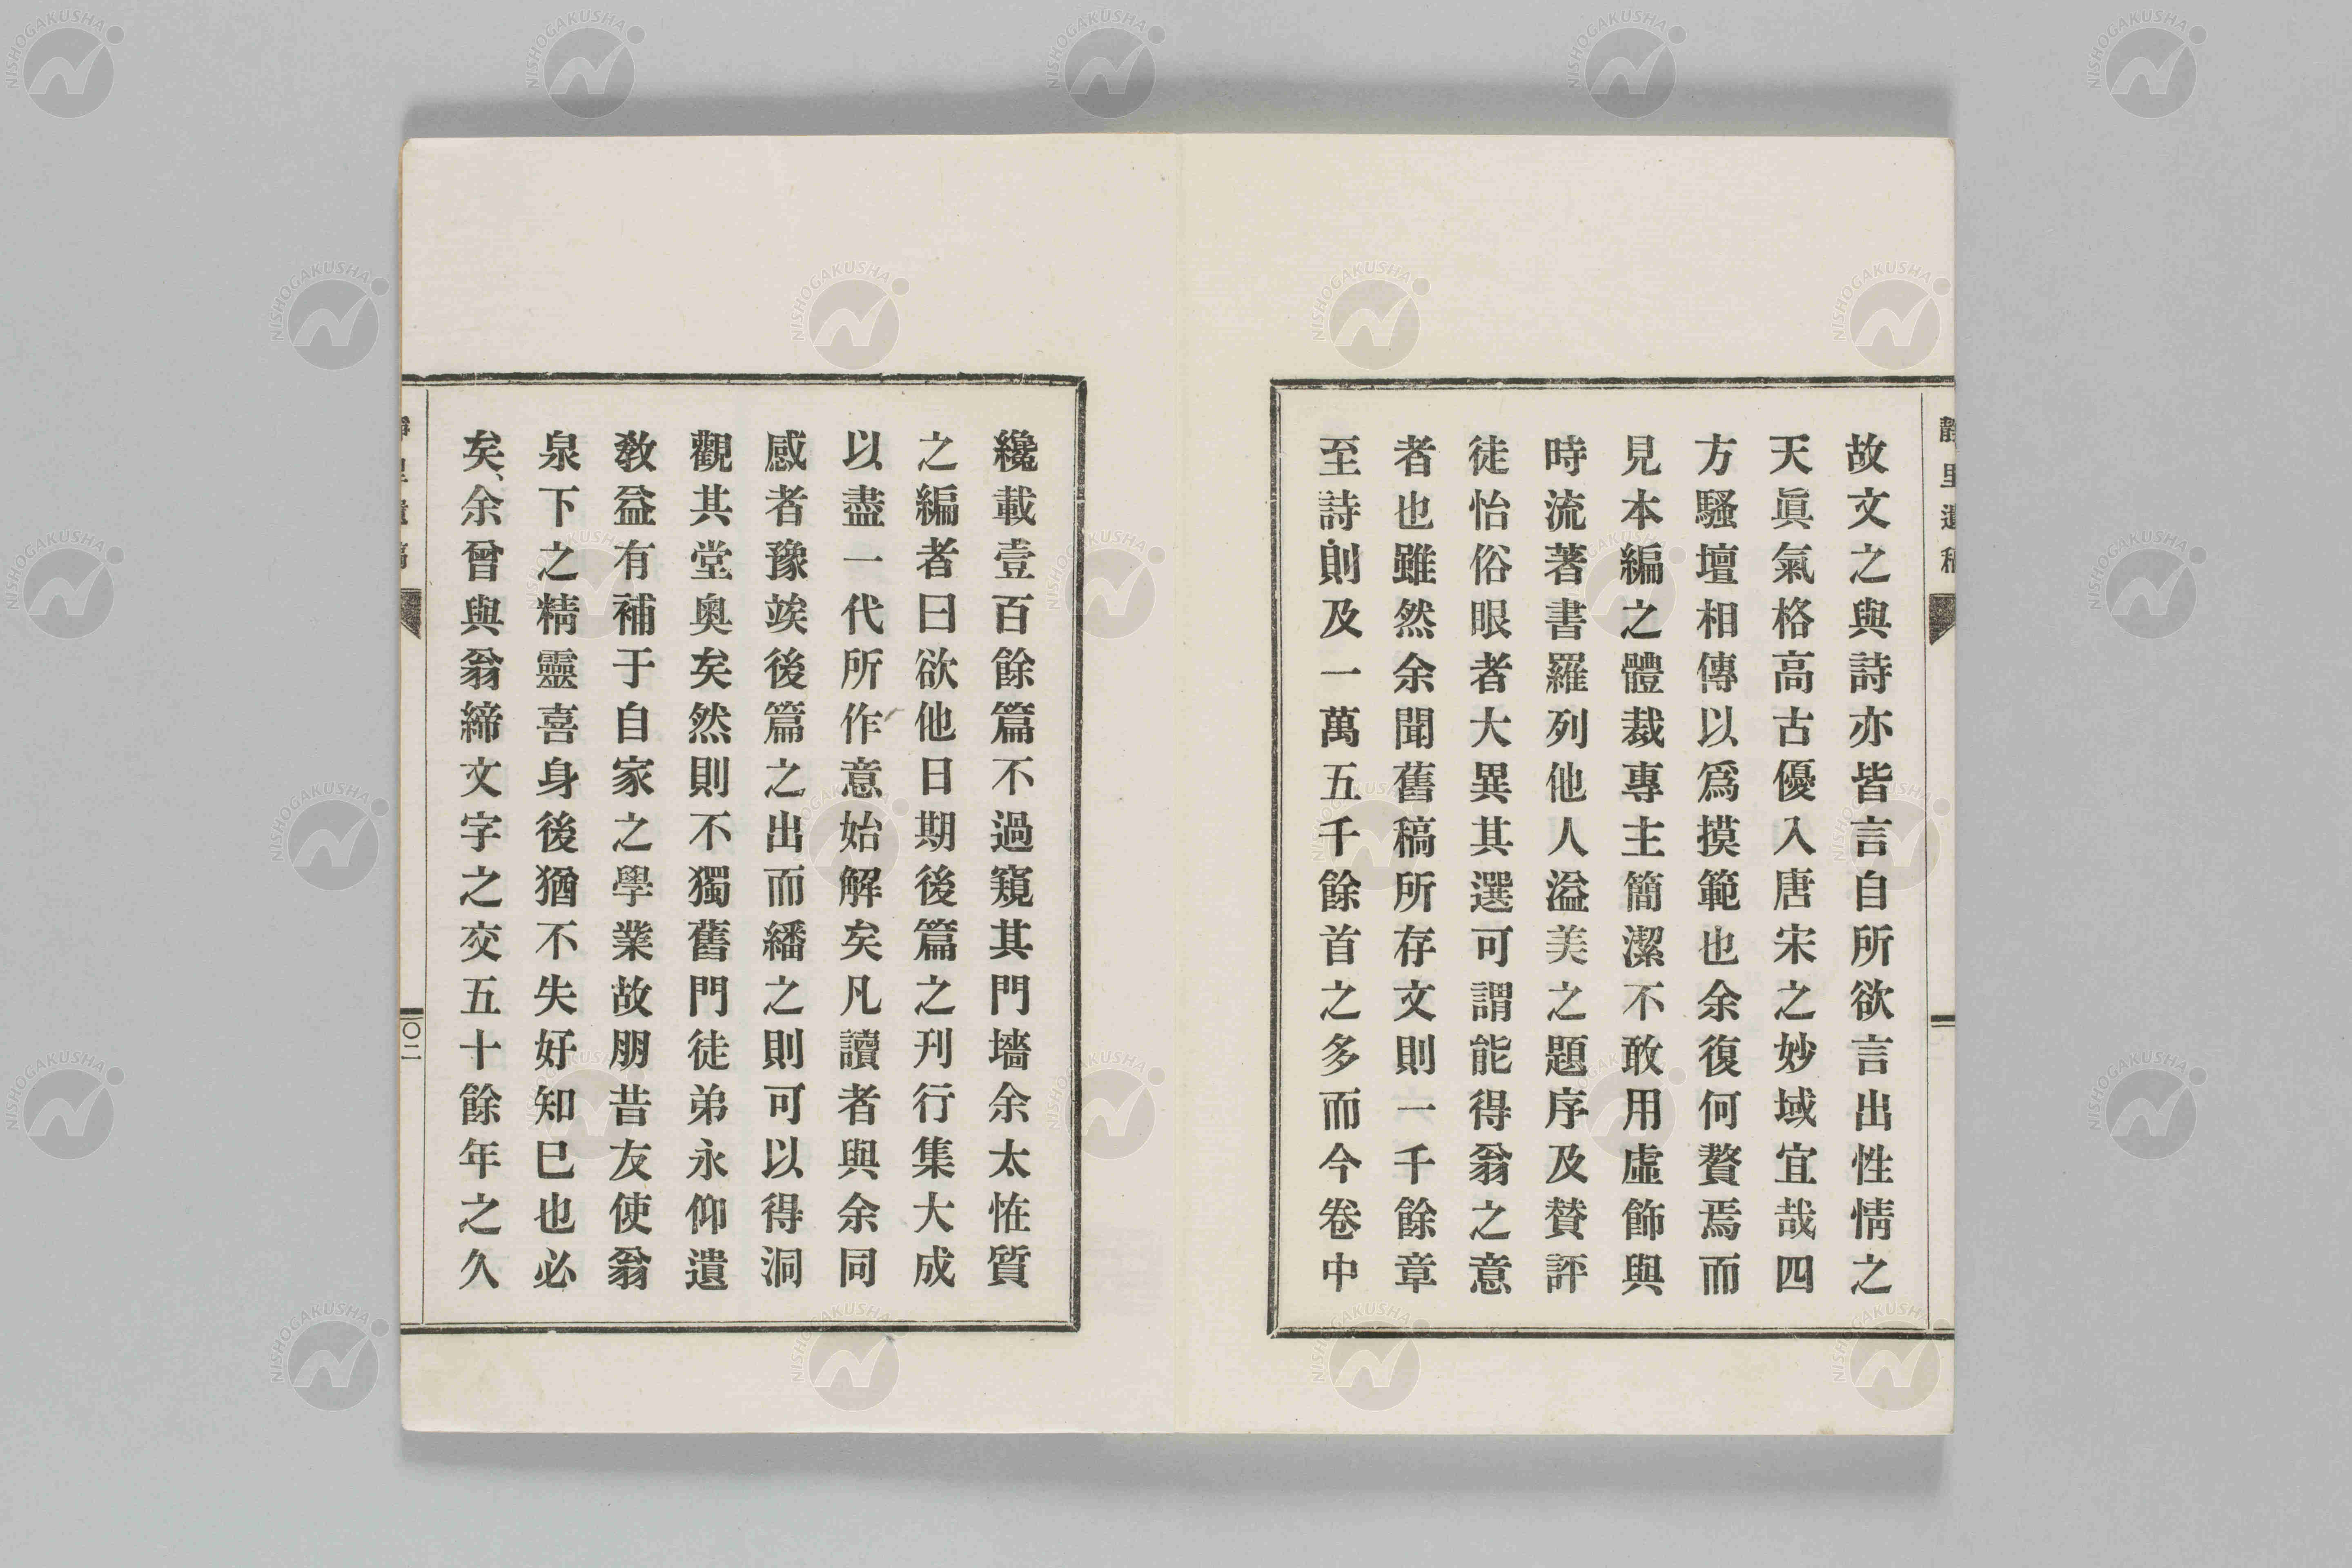 故文之與詩亦皆言自所欲言出性情之
天眞氣格高古優入唐宋之妙域宜哉四
方騷壇相傳以爲摸範也余復何贅焉而
見本編之體裁專主簡潔不敢用虛飾與
時流著書羅列他人溢美之題序及賛評
徒怡俗眼者大異其選可謂能得翁之意
者也雖然余聞舊稿所存文則一千餘章
至詩則及一萬五千餘首之多而今卷中
纔載壹百餘篇不過窺其門墻余太恠質
之編者曰欲他日期後篇之刊行集大成
以盡一代所作意始解矣凡讀者與余同
感者豫竢後篇之出而繙之則可以得洞
觀其堂奥矣然則不獨舊門徒弟永仰遺
教益有補于自家之學業故朋昔友使翁
泉下之精靈喜身後猶不失好知巳也必
矣、余曾與翁締文字之交五十餘年之久
〇二
NISHOGAKUSHA